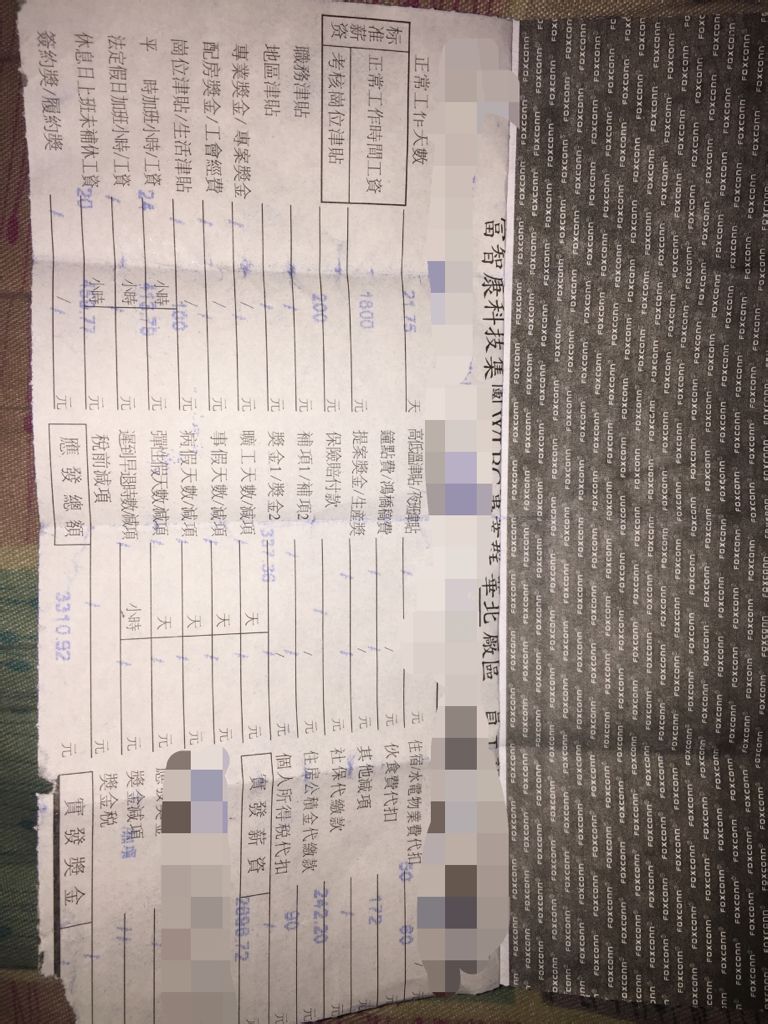 FOXCONN
富智康科技集團
華北 廠區
正常工作天數 21.75 天
标准薪資
正常工作時間工資 1800 元
考核崗位津貼 200 元
職務津貼 / 元
地區津貼 / 元
專業獎金/專案獎金 / / 元
配房獎金/工會經費 / / 元
崗位津貼/生活津貼 / 400 元
平 時加班小時/工資 24 小時 元
法定假日加班小時/工資 / 小時 元
休息日上班未補休工資 20 小時 元
簽約獎/履約獎 / / 元
高低溫津貼 元
鐘點費 / 元
提案獎金/生産獎 / / 元
保險賠付款 / 元
補項1/補項2 / / 元
獎金1/獎金2 337.36 / 元
曠工天數/減項 / 天 / 元
事假天數/減項 / 天 / 元
病假天數/減項 / 天 / 元
彈性假天數/減項 / 天 / 元
遲到早退時數/減項 / 小時 / 元
稅前減項 / 元
應發總額 3310.92 元
住宿水電物業費代扣 50 60
伙食費代扣 172 元
其他減項 / 元
社保代繳款 242.20 元
住房公積金代繳款 90 元
個人所得稅代扣 / 元
實發薪資 2696.72
獎金減項
獎金稅
實發獎金